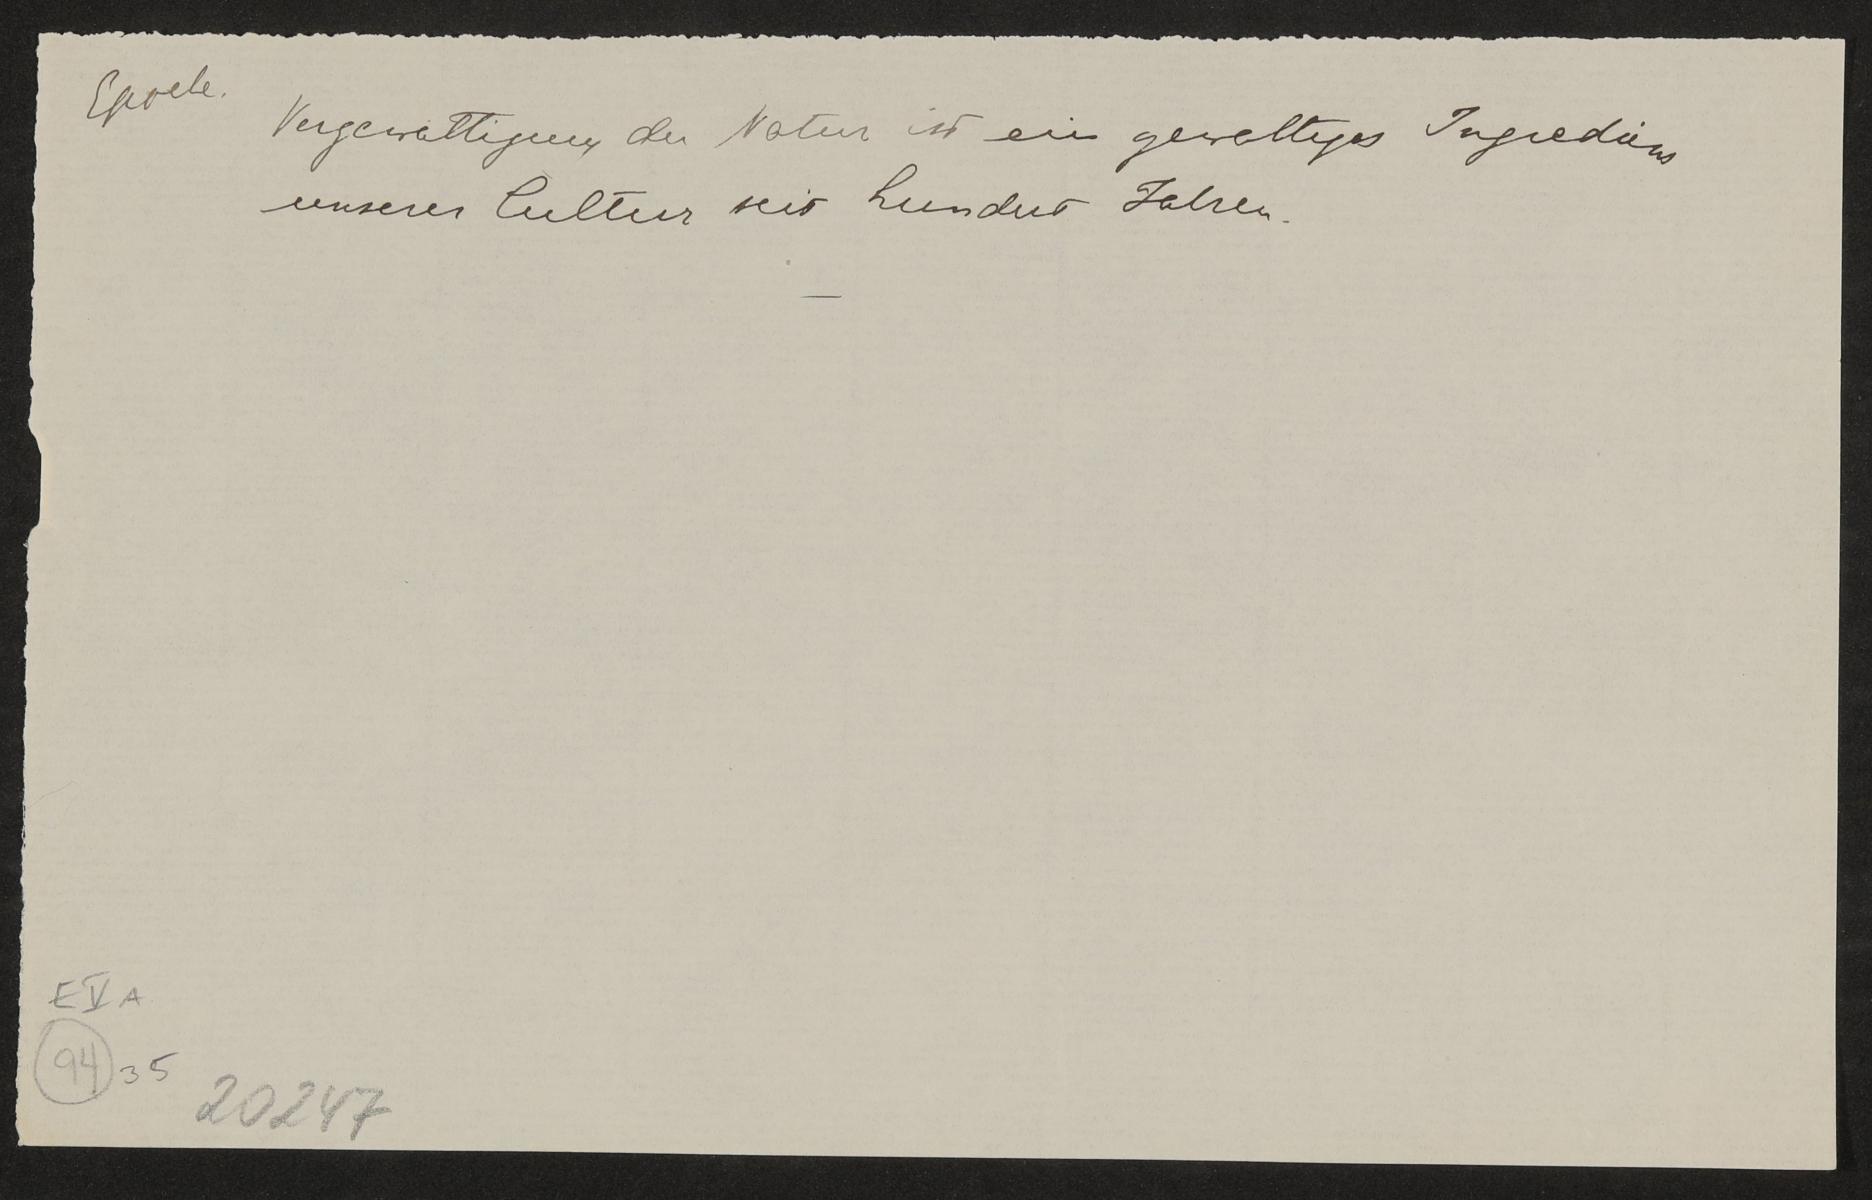 Epoche.
Vergewaltigung der Natur ist ein gewaltiges Ingrediens
unserer Cultur seit hundert Jahren.
—
E V A
94 35
20247